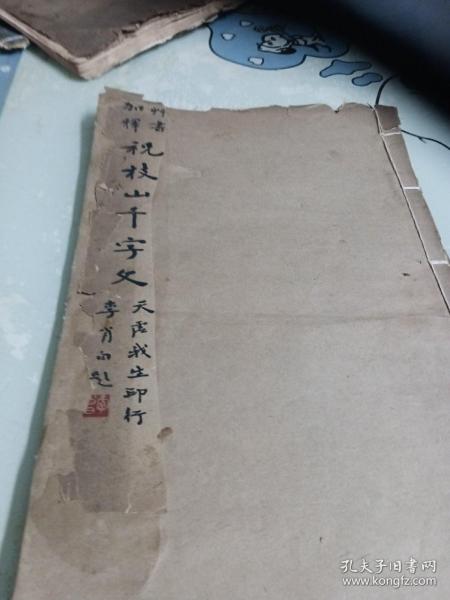 艸書
加釋
祝枝山千字文
天虛我生印行
李肖白題
孔夫子旧书网
www.kongfz.com